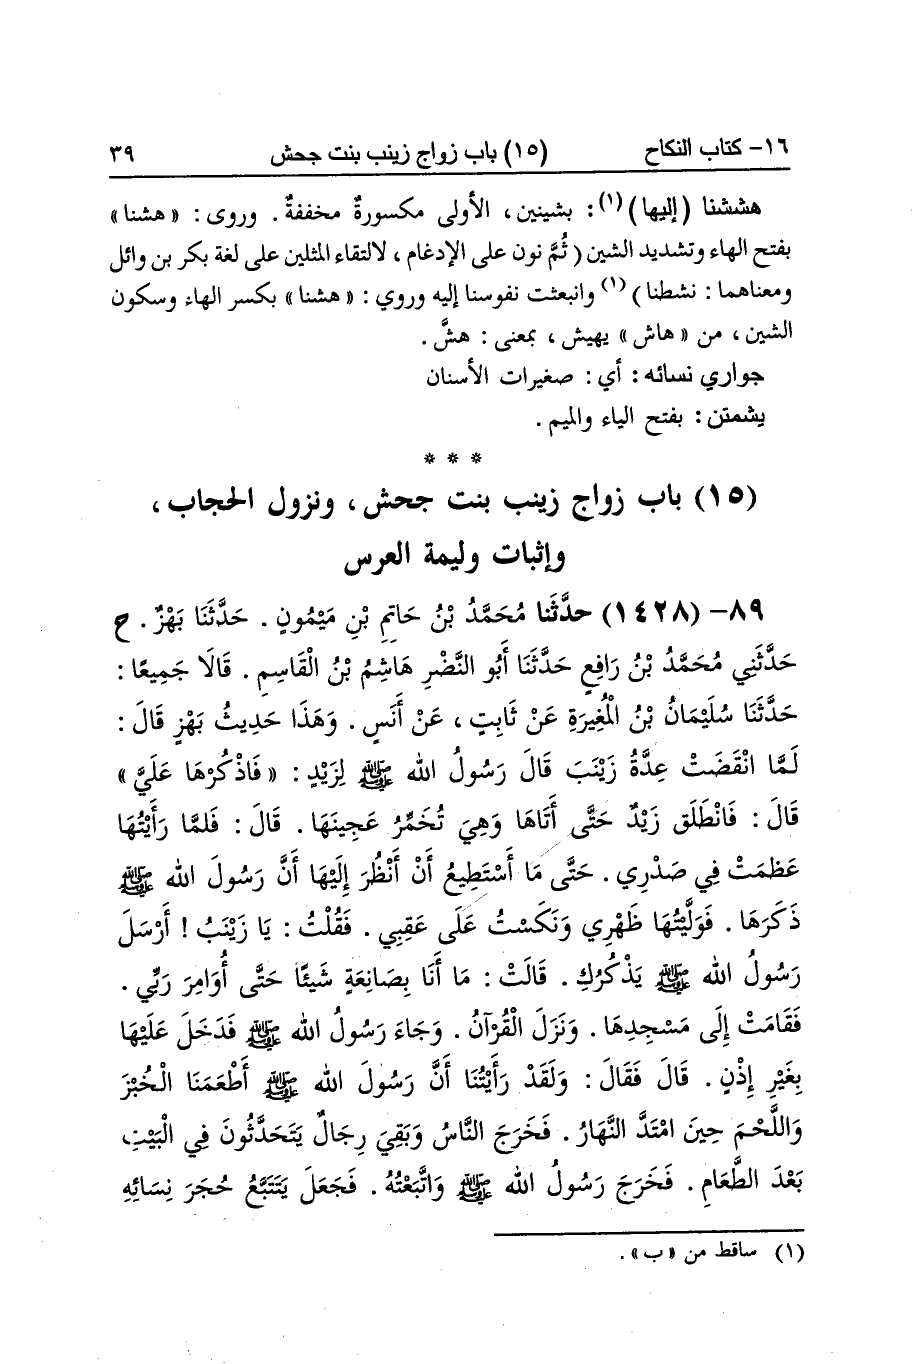 ١٦- كتاب النكاح (١٥) باب زواج زينب بنت جحش ٣٩
هششنا (إليها)(١): بشينين، الأولى مكسورةٌ مخففةٌ. وروى: «هشنا»
بفتح الهاء وتشديد الشين (ثُمَّ نون على الإدغام، لالتقاء المثلين على لغة بكر بن وائل
ومعناهما: نشطنا)(١) وانبعثت نفوسنا إليه وروي: «هشنا» بكسر الهاء وسكون
الشين، من «هاش» يهيش، بمعنى: هشَّ.
جواري نسائه: أي: صغيرات الأسنان
يشمتن: بفتح الياء والميم.
* * *
(١٥) باب زواج زينب بنت جحش، ونزول الحجاب،
وإثبات وليمة العرس
٨٩- (١٤٢٨) حدَّثَنا مُحَمَّدُ بْنُ حَاتِمِ بْنِ مَيْمُونٍ. حَدَّثَنَا بَهْزٌ. ح
حَدَّثَنِي مُحَمَّدُ بْنُ رَافِعٍ حَدَّثَنَا أَبُو النَّضْرِ هَاشِمُ بْنُ الْقَاسِمِ. قَالَا جَمِيعًا:
حَدَّثَنَا سُلَيْمَانُ بْنُ الْمُغِيرَةِ عَنْ ثَابِتٍ، عَنْ أَنَسٍ. وَهَذَا حَدِيثُ بَهْزٍ قَالَ:
لَمَّا انْقَضَتْ عِدَّةُ زَيْنَبَ قَالَ رَسُولُ الله ﷺ لِزَيْدٍ: «فَاذْكُرْهَا عَلَيَّ»
قَالَ: فَانْطَلَقَ زَيْدٌ حَتَّى أَتَاهَا وَهِيَ تُخَمِّرُ عَجِينَهَا. قَالَ: فَلمَّا رَأَيْتُهَا
عَظمَتْ فِي صَدْرِي. حَتَّى مَا أَسْتَطِيعُ أَنْ أَنْظُرَ إِلَيْهَا أَنَّ رَسُولَ الله ﷺ
ذَكَرَهَا. فَوَلَّيْتُهَا ظَهْرِي وَنَكَسْتُ عَلَى عَقِبِي. فَقُلْتُ: يَا زَيْنَبُ! أَرْسَلَ
رَسُولُ الله ﷺ يَذْكُرُكِ. قَالَتْ: مَا أَنَا بِصَانِعَةٍ شَيْئًا حَتَّى أُوَامِرَ رَبِّي.
فَقَامَتْ إِلَى مَسْجِدِهَا. وَنَزَلَ الْقُرْآنُ. وَجَاءَ رَسُولُ الله ﷺ فَدَخَلَ عَلَيْهَا
بِغَيْرِ إِذْنٍ. قَالَ فَقَالَ: وَلَقَدْ رَأَيْتُنَا أَنَّ رَسُولَ الله ﷺ أَطْعَمَنَا الْخُبْزَ
وَاللَّحْمَ حِينَ امْتَدَّ النَّهَارُ. فَخَرَجَ النَّاسُ وَبَقِيَ رِجَالٌ يَتَحَدَّثُونَ فِي الْبَيْتِ
بَعْدَ الطَّعَامِ. فَخَرَجَ رَسُولُ الله ﷺ وَاتَّبَعْتُهُ. فَجَعَلَ يَتَتَبَّعُ حُجَرَ نِسَائِهِ
(١) ساقط من «ب».